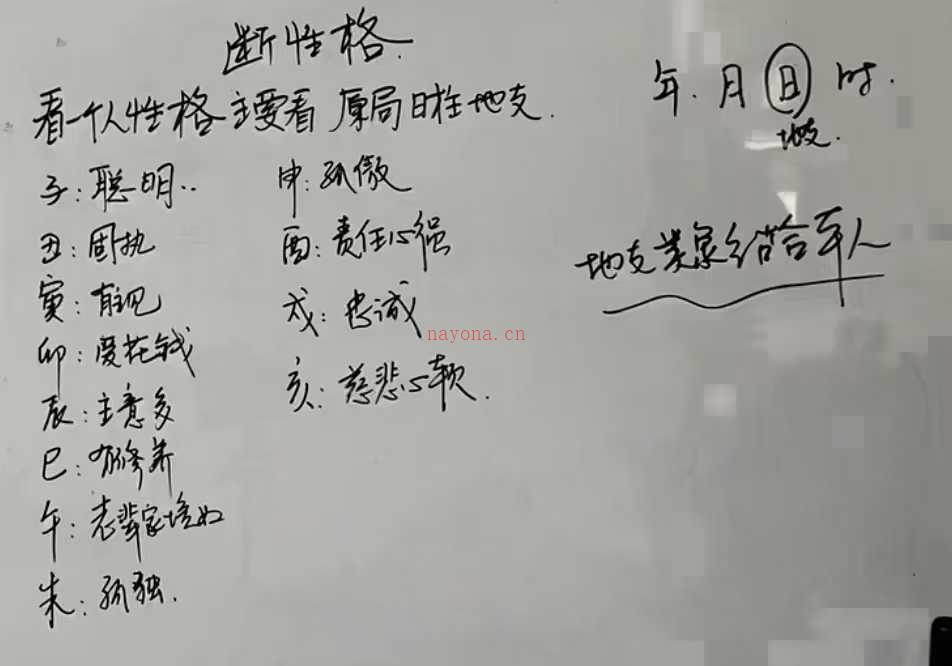 断性格.
看一个人性格主要看 原局日柱地支.
子:聪明..
丑:固执
寅:有主见
卯:爱花钱
辰:主意多
巳:有修养
午:老辈家境好
未:孤独.
申:孤傲
酉:责任心强
戌:忠诚
亥:慈悲心软.
年.月日时.
地支.
地支类象结合军人
nayona.cn